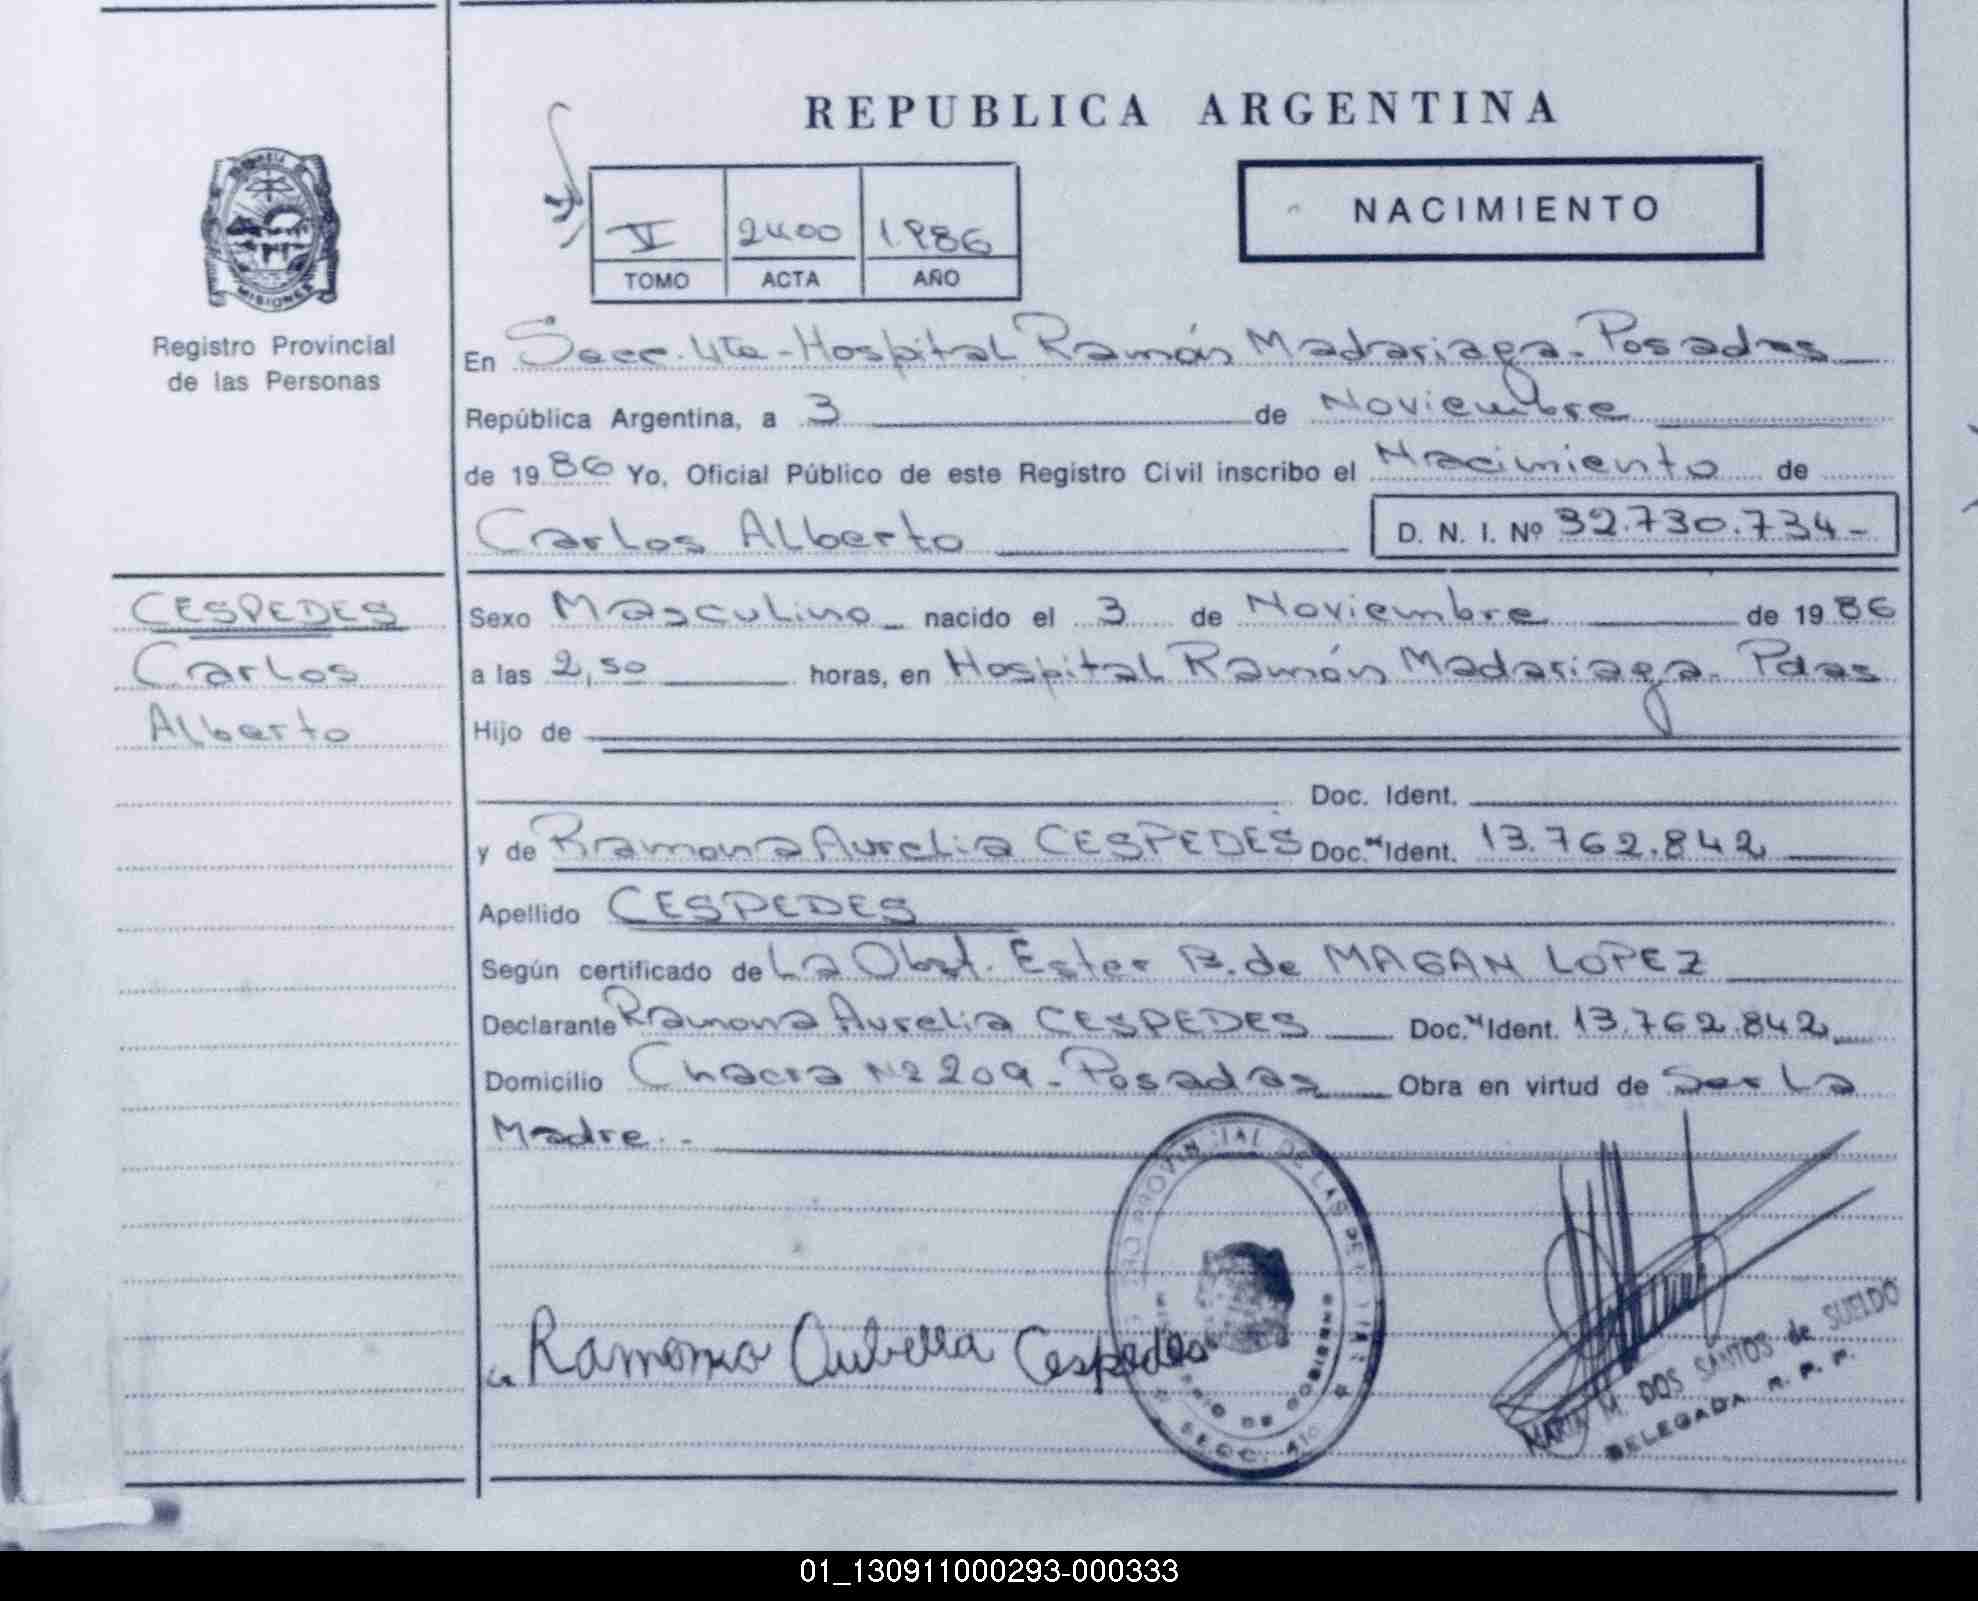 REPUBLICA ARGENTINA
NACIMIENTO
VI 2400 1.986
TOMO ACTA AÑO
MISIONES
Registro Provincial
de las Personas
En Secc. 4ta - Hospital Ramón Madariaga - Posadas
República Argentina, a 3 de Noviembre
de 1986 Yo, Oficial Público de este Registro Civil inscribo el Nacimiento de
Carlos Alberto D. N. I. Nº 32.730.734-
CESPEDES
Carlos
Alberto
Sexo Masculino nacido el 3 de Noviembre de 1986
a las 2,50 horas, en Hospital Ramón Madariaga - Pdas
Hijo de
Doc. Ident.
y de Ramona Aurelia CESPEDES Doc. Ident. 13.762.842
Apellido CESPEDES
Según certificado de La Obst. Ester B. de MAGAN LOPEZ
Declarante Ramona Aurelia CESPEDES Doc. Ident. 13.762.842
Domicilio Chacra Nº 209 - Posadas Obra en virtud de Ser La
Madre.-
PROVINCIAL DE LAS PER
DE GOBIERNO
SECC. 4ta
Ramona Cespedes
MARIA M. DOS SANTOS de SUELDO
DELEGADA R. P. P.
01_130911000293-000333